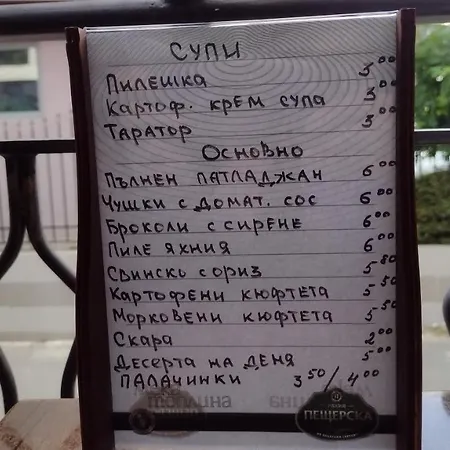 СУПИ
ПИЛЕШКА 3⁰⁰
КАРТОФ. КРЕМ СУПА 3⁰⁰
ТАРАТОР 3⁰⁰
ОСНОВНО
ПЪЛНЕН ПАТЛАДЖАН 6⁰⁰
ЧУШКИ С ДОМАТ. СОС 6⁰⁰
БРОКОЛИ С СИРЕНЕ 6⁰⁰
ПИЛЕ ЯХНИЯ 6⁰⁰
СВИНСКО С ОРИЗ 5⁸⁰
КАРТОФЕНИ КЮФТЕТА 5⁵⁰
МОРКОВЕНИ КЮФТЕТА 5⁵⁰
СКАРА 2⁰⁰
ДЕСЕРТА НА ДЕНЯ 5⁰⁰
ПАЛАЧИНКИ 3⁵⁰/4⁰⁰
ПЕЩЕРСКА